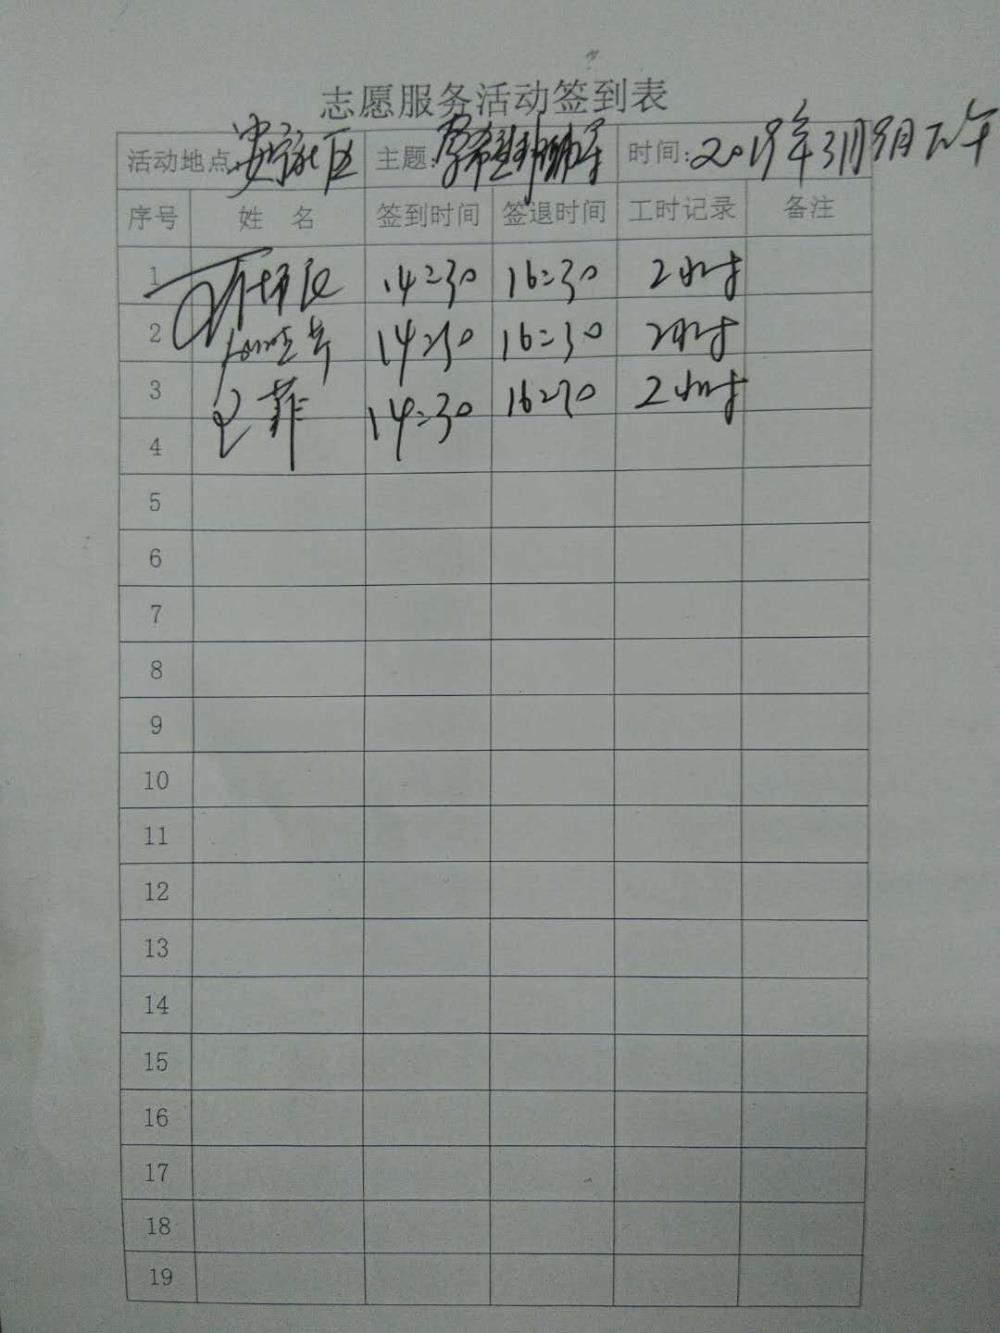 志愿服务活动签到表
活动地点 主题: 时间:2019年3月9日下午
序号 姓 名 签到时间 签退时间 工时记录 备注
1 14:30 16:30 2小时
2 14:30 16:30 2小时
3 王菲 14:30 16:30 2小时
4
5
6
7
8
9
10
11
12
13
14
15
16
17
18
19